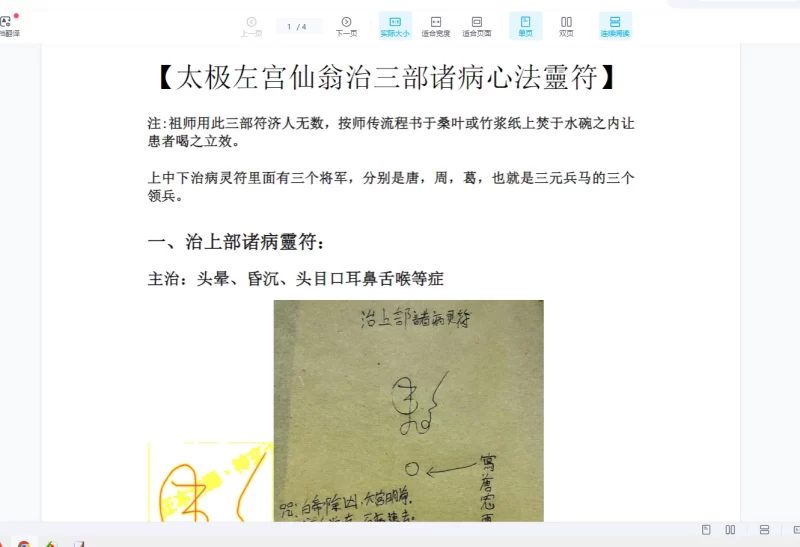 档翻译
上一页
1 / 4
下一页
实际大小
适合宽度
适合页面
单页
双页
连续阅读
【太极左宫仙翁治三部诸病心法靈符】
注:祖师用此三部符济人无数，按师传流程书于桑叶或竹浆纸上焚于水碗之内让
患者喝之立效。
上中下治病灵符里面有三个将军，分别是唐，周，葛，也就是三元兵马的三个
领兵。
一、治上部诸病靈符：
主治：头晕、昏沉、头目口耳鼻舌喉等症
治上部諸病灵符